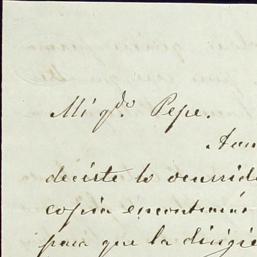 Mi qdo. Pepe.
Aun
decirte lo ocurrido
copia encontrarás
para que la dirigie